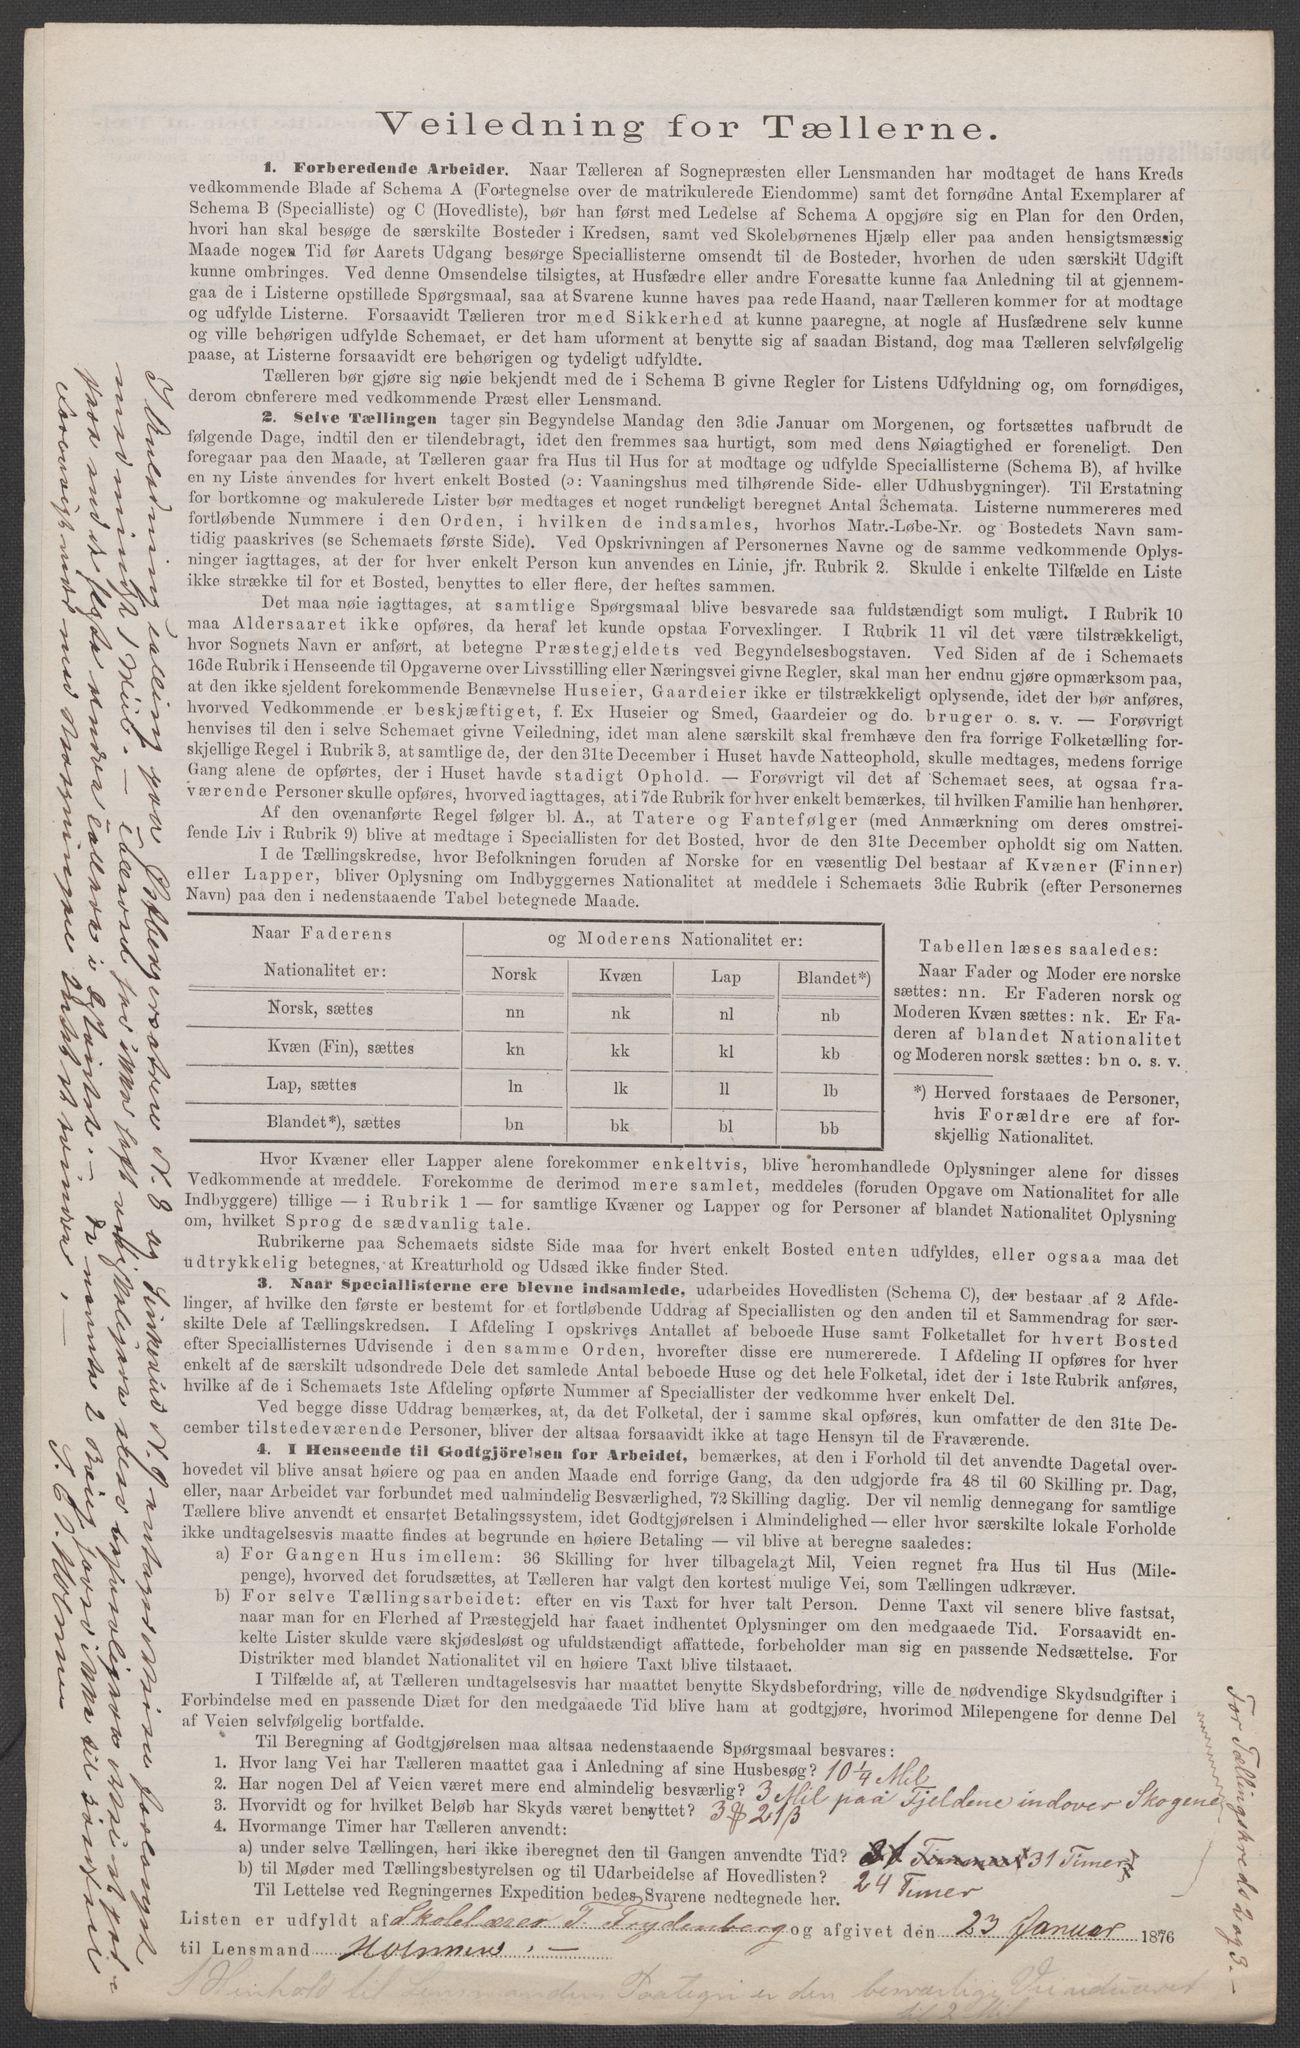 Veiledning for Tællerne.
1. Forberedende Arbeider. Naar Tælleren af Sognepræsten eller Lensmanden har modtaget de hans Kreds
vedkommende Blade af Schema A (Fortegnelse over de matrikulerede Eiendomme) samt det fornødne Antal Exemplarer af
Schema B (Specialliste) og C (Hovedliste), bør han først med Ledelse af Schema A opgjøre sig en Plan for den Orden,
hvori han skal besøge de særskilte Bosteder i Kredsen, samt ved Skolebørnenes Hjælp eller paa anden hensigtsmæssig
Maade nogen Tid før Aarets Udgang besørge Speciallisterne omsendt til de Bosteder, hvorhen de uden særskilt Udgift
kunne ombringes. Ved denne Omsendelse tilsigtes, at Husfædre eller andre Foresatte kunne faa Anledning til at gjennem-
gaa de i Listerne opstillede Spørgsmaal, saa at Svarene kunne haves paa rede Haand, naar Tælleren kommer for at modtage
og udfylde Listerne. Forsaavidt Tælleren tror med Sikkerhed at kunne paaregne, at nogle af Husfædrene selv kunne
og ville behørigen udfylde Schemaet, er det ham uforment at benytte sig af saadan Bistand, dog maa Tælleren selvfølgelig
paase, at Listerne forsaavidt ere behørigen og tydeligt udfyldte.
Tælleren bør gjøre sig nøie bekjendt med de i Schema B givne Regler for Listens Udfyldning og, om fornødiges,
derom conferere med vedkommende Præst eller Lensmand.
2. Selve Tællingen tager sin Begyndelse Mandag den 3die Januar om Morgenen, og fortsættes uafbrudt de
følgende Dage, indtil den er tilendebragt, idet den fremmes saa hurtigt, som med dens Nøiagtighed er foreneligt. Den
foregaar paa den Maade, at Tælleren gaar fra Hus til Hus for at modtage og udfylde Speciallisterne (Schema B), af hvilke
en ny Liste anvendes for hvert enkelt Bosted (ɔ: Vaaningshus med tilhørende Side- eller Udhusbygninger). Til Erstatning
for bortkomne og makulerede Lister bør medtages et noget rundeligt beregnet Antal Schemata. Listerne nummereres med
fortløbende Nummere i den Orden, i hvilken de indsamles, hvorhos Matr.-Løbe-Nr. og Bostedets Navn sam-
tidig paaskrives (se Schemaets første Side). Ved Opskrivningen af Personernes Navne og de samme vedkommende Oplys-
ninger iagttages, at der for hver enkelt Person kun anvendes en Linie, jfr. Rubrik 2. Skulde i enkelte Tilfælde en Liste
ikke strække til for et Bosted, benyttes to eller flere, der heftes sammen.
Det maa nøie iagttages, at samtlige Spørgsmaal blive besvarede saa fuldstændigt som muligt. I Rubrik 10
maa Aldersaaret ikke opføres, da heraf let kunde opstaa Forvexlinger. I Rubrik 11 vil det være tilstrækkeligt,
hvor Sognets Navn er anført, at betegne Præstegjeldets ved Begyndelsesbogstaven. Ved Siden af de i Schemaets
16de Rubrik i Henseende til Opgaverne over Livsstilling eller Næringsvei givne Regler, skal man her endnu gjøre opmærksom paa,
at den ikke sjeldent forekommende Benævnelse Huseier, Gaardeier ikke er tilstrækkeligt oplysende, idet der bør anføres,
hvorved Vedkommende er beskjæftiget, f. Ex Huseier og Smed, Gaardeier og do. bruger o. s. v. — Forøvrigt
henvises til den i selve Schemaet givne Veiledning, idet man alene særskilt skal fremhæve den fra forrige Folketælling for-
skjellige Regel i Rubrik 3, at samtlige de, der den 31te December i Huset havde Natteophold, skulle medtages, medens forrige
Gang alene de opførtes, der i Huset havde stadigt Ophold. — Forøvrigt vil det af Schemaet sees, at ogsaa fra-
værende Personer skulle opføres, hvorved iagttages, at i 7de Rubrik for hver enkelt bemærkes, til hvilken Familie han henhører.
Af den ovenanførte Regel følger bl. A., at Tatere og Fantefølger (med Anmærkning om deres omstrei-
fende Liv i Rubrik 9) blive at medtage i Speciallisten for det Bosted, hvor de den 31te December opholdt sig om Natten.
I de Tællingskredse, hvor Befolkningen foruden af Norske for en væsentlig Del bestaar af Kvæner (Finner)
eller Lapper, bliver Oplysning om Indbyggernes Nationalitet at meddele i Schemaets 3die Rubrik (efter Personernes
Navn) paa den i nedenstaaende Tabel betegnede Maade.
Naar Faderens
Nationalitet er:
og Moderens Nationalitet er:
Norsk Kvæn Lap Blandet*)
Norsk, sættes nn nk nl nb
Kvæn (Fin), sættes kn kk kl kb
Lap, sættes ln lk ll lb
Blandet*), sættes bn bk bl bb
Tabellen læses saaledes:
Naar Fader og Moder ere norske
sættes: nn. Er Faderen norsk og
Moderen Kvæn sættes: nk. Er Fa-
deren af blandet Nationalitet
og Moderen norsk sættes: bn o. s. v.
*) Herved forstaaes de Personer,
hvis Forældre ere af for-
skjellig Nationalitet.
Hvor Kvæner eller Lapper alene forekommer enkeltvis, blive heromhandlede Oplysninger alene for disses
Vedkommende at meddele. Forekomme de derimod mere samlet, meddeles (foruden Opgave om Nationalitet for alle
Indbyggere) tillige — i Rubrik 1 — for samtlige Kvæner og Lapper og for Personer af blandet Nationalitet Oplysning
om, hvilket Sprog de sædvanlig tale.
Rubrikerne paa Schemaets sidste Side maa for hvert enkelt Bosted enten udfyldes, eller ogsaa maa det
udtrykkelig betegnes, at Kreaturhold og Udsæd ikke finder Sted.
3. Naar Speciallisterne ere blevne indsamlede, udarbeides Hovedlisten (Schema C), der bestaar af 2 Afde-
linger, af hvilke den første er bestemt for et fortløbende Uddrag af Speciallisten og den anden til et Sammendrag for sær-
skilte Dele af Tællingskredsen. I Afdeling I opskrives Antallet af beboede Huse samt Folketallet for hvert Bosted
efter Speciallisternes Udvisende i den samme Orden, hvorefter disse ere numererede. I Afdeling II opføres for hver
enkelt af de særskilt udsondrede Dele det samlede Antal beboede Huse og det hele Folketal, idet der i 1ste Rubrik anføres,
hvilke af de i Schemaets 1ste Afdeling opførte Nummer af Speciallister der vedkomme hver enkelt Del.
Ved begge disse Uddrag bemærkes, at, da det Folketal, der i samme skal opføres, kun omfatter de den 31te De-
cember tilstedeværende Personer, bliver der altsaa forsaavidt ikke at tage Hensyn til de Fraværende.
4. I Henseende til Godtgjörelsen for Arbeidet, bemærkes, at den i Forhold til det anvendte Dagetal over-
hovedet vil blive ansat høiere og paa en anden Maade end forrige Gang, da den udgjorde fra 48 til 60 Skilling pr. Dag,
eller, naar Arbeidet var forbundet med ualmindelig Besværlighed, 72 Skilling daglig. Der vil nemlig dennegang for samtlige
Tællere blive anvendt et ensartet Betalingssystem, idet Godtgjörelsen i Almindelighed — eller hvor særskilte lokale Forholde
ikke undtagelsesvis maatte findes at begrunde en høiere Betaling — vil blive at beregne saaledes:
a) For Gangen Hus imellem: 36 Skilling for hver tilbagelagt Mil, Veien regnet fra Hus til Hus (Mile-
penge), hvorved det forudsættes, at Tælleren har valgt den kortest mulige Vei, som Tællingen udkræver.
b) For selve Tællingsarbeidet: efter en vis Taxt for hver talt Person. Denne Taxt vil senere blive fastsat,
naar man for en Flerhed af Præstegjeld har faaet indhentet Oplysninger om den medgaaede Tid. Forsaavidt en-
kelte Lister skulde være skjødesløst og ufuldstændigt affattede, forbeholder man sig en passende Nedsættelse. For
Distrikter med blandet Nationalitet vil en høiere Taxt blive tilstaaet.
I Tilfælde af, at Tælleren undtagelsesvis har maattet benytte Skydsbefordring, ville de nødvendige Skydsudgifter i
Forbindelse med en passende Diæt for den medgaaede Tid blive ham at godtgjøre, hvorimod Milepengene for denne Del
af Veien selvfølgelig bortfalde.
Til Beregning af Godtgjörelsen maa altsaa nedenstaaende Spørgsmaal besvares:
1. Hvor lang Vei har Tælleren maattet gaa i Anledning af sine Husbesøg? 10 1/4 Mil
2. Har nogen Del af Veien været mere end almindelig besværlig? 3 Mil paa Fjeldene indover Skogene
3. Hvorvidt og for hvilket Beløb har Skyds været benyttet? 3 21 ß
4. Hvormange Timer har Tælleren anvendt:
a) under selve Tællingen, heri ikke iberegnet den til Gangen anvendte Tid? 31 Timer
b) til Møder med Tællingsbestyrelsen og til Udarbeidelse af Hovedlisten? 24 Timer
Til Lettelse ved Regningernes Expedition bedes Svarene nedtegnede her.
Listen er udfyldt af Skolelærer T. Frydenberg og afgivet den 23 Januar 1876
til Lensmand Holmen. —
I Henhold til Lensmandens Paategn er den besværlige Vei
til 2 Mil
For Tællingskreds 2 og 3. —